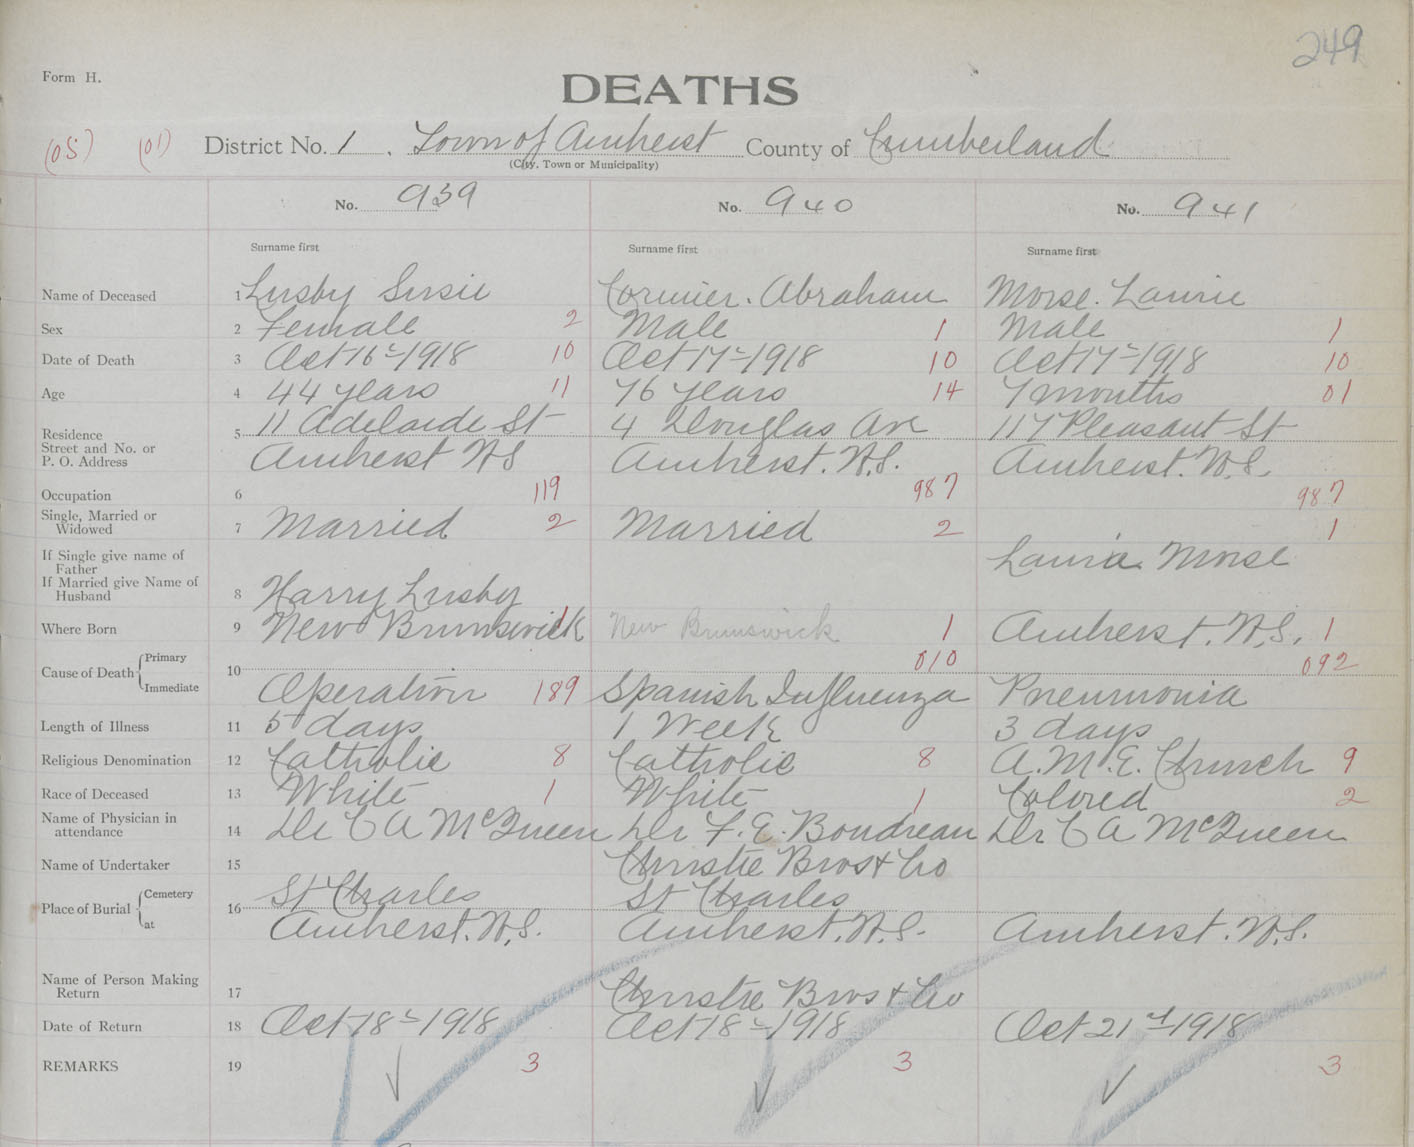 249
Form H.
DEATHS
(05) (01) District No. 1. Town of Amherst County of Cumberland
(City, Town or Municipality)
No. 939 No. 940 No. 941
Surname first Surname first Surname first
Name of Deceased 1 Lusby Susie Cormier. Abraham Morse. Laurie
Sex 2 Female 2 Male 1 Male 1
Date of Death 3 Oct 16th 1918 10 Oct 17th 1918 10 Oct 17th 1918 10
Age 4 44 years 11 76 years 14 7 months 01
Residence 5 11 Adelaide St 4 Douglas Ave 117 Pleasant St
Street and No. or
P. O. Address Amherst N S Amherst. N.S. Amherst. N.S.
Occupation 6 119 987 987
Single, Married or
Widowed 7 Married 2 Married 2 1
If Single give name of
Father Morse
If Married give Name of
Husband 8 Harry Lusby
Where Born 9 New Brunswick 1 New Brunswick 1 Amherst. N.S. 1
Cause of Death Primary 10 010 092
Immediate Operation 189 Spanish Influenza Pneumonia
Length of Illness 11 5 days 1 Week 3 days
Religious Denomination 12 Catholic 8 Catholic 8 A.M.E. Church 9
Race of Deceased 13 White 1 White 1 Colored 2
Name of Physician in
attendance 14 Dr C A McQueen Dr F. E. Boudreau Dr C A McQueen
Name of Undertaker 15 Christie Bros & Co
Place of Burial Cemetery 16 St Charles St Charles
at Amherst. N.S. Amherst. N.S. Amherst. N.S.
Name of Person Making
Return 17 Christie Bros & Co
Date of Return 18 Oct 18th 1918 Oct 18th 1918 Oct 21st 1918
REMARKS 19 3 3 3